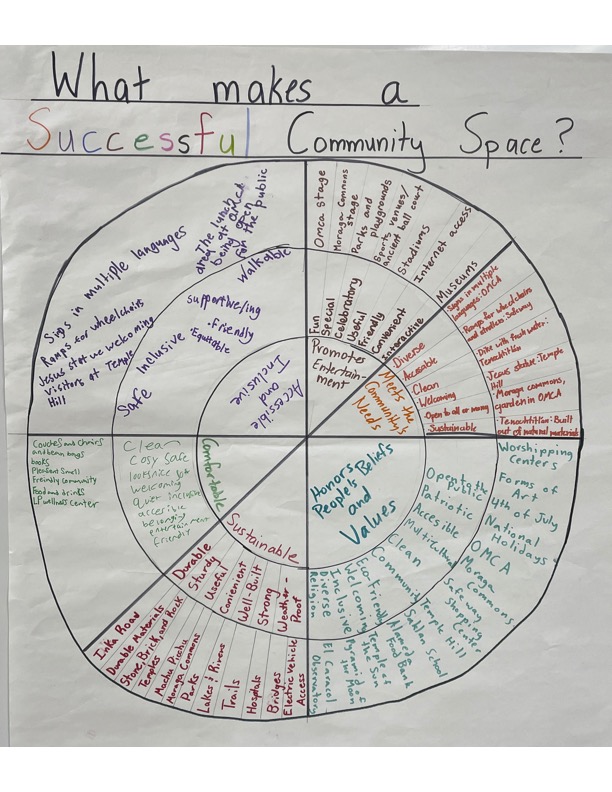 What makes a
Successful Community Space?
Accessible
and
Inclusive
Safe
Inclusive
Supportive/ing
-Friendly
-Equitable
Walkable
Signs in multiple languages
Ramps for wheelchairs
Jesus statue welcoming
visitors at Temple
Hill
The lunch
area at OMCA
being open
for the public
Promotes
Entertain-
ment
Fun
Special
Celebratory
Useful
Friendly
Convenient
Interactive
OMCA Stage
Moraga Commons
stage
Parks and
playgrounds
Sports venues/
ancient ball court
Stadiums
Internet access
Museums
Meets the
Community's
Needs
Diverse
Accesable
Clean
Welcoming
Open to all or many
Sustainable
Signs in multiple
languages: OMCA
Ramps for wheelchairs
and strollers: Safeway
Dike with fresh water:
Tenochtitlan
Jesus statue: Temple
Hill
Moraga commons,
garden in OMCA
Tenochtitlan: Built
out of natural materials
Honors
People's Beliefs
and
Values
Open to the
Public
Patriotic
Accesible
Multicultural
Clean
Community
EcoFriendly
Welcoming
Inclusive
Diverse
Religion
Worshipping
Centers
Forms of
Art
4th of July
National
Holidays
OMCA
Moraga
Commons
Safeway
Shopping
Center
Temple Hill
Saklan School
Alameda
Food Bank
Temple of
the Sun
Pyramid of
the Moon
El Caracol
Observatory
Sustainable
Durable
Sturdy
Useful
Convenient
Well-Built
Strong
Weather-
Proof
Inka Road
Durable Materials
Stone, Brick, and Rock
Temples
Machu Picchu
Moraga Commons
Parks
Lakes + Rivers
Trails
Hospitals
Bridges
Electric Vehicle
Access
Comfortable
Clean
Cosy Safe
welcoming
quiet inclusive
accesible
belonging
entertainment
friendly
Couches and chairs
and bean bags
books
Pleasant Smell
Freindly community
Food and drinks
LP wellness Center